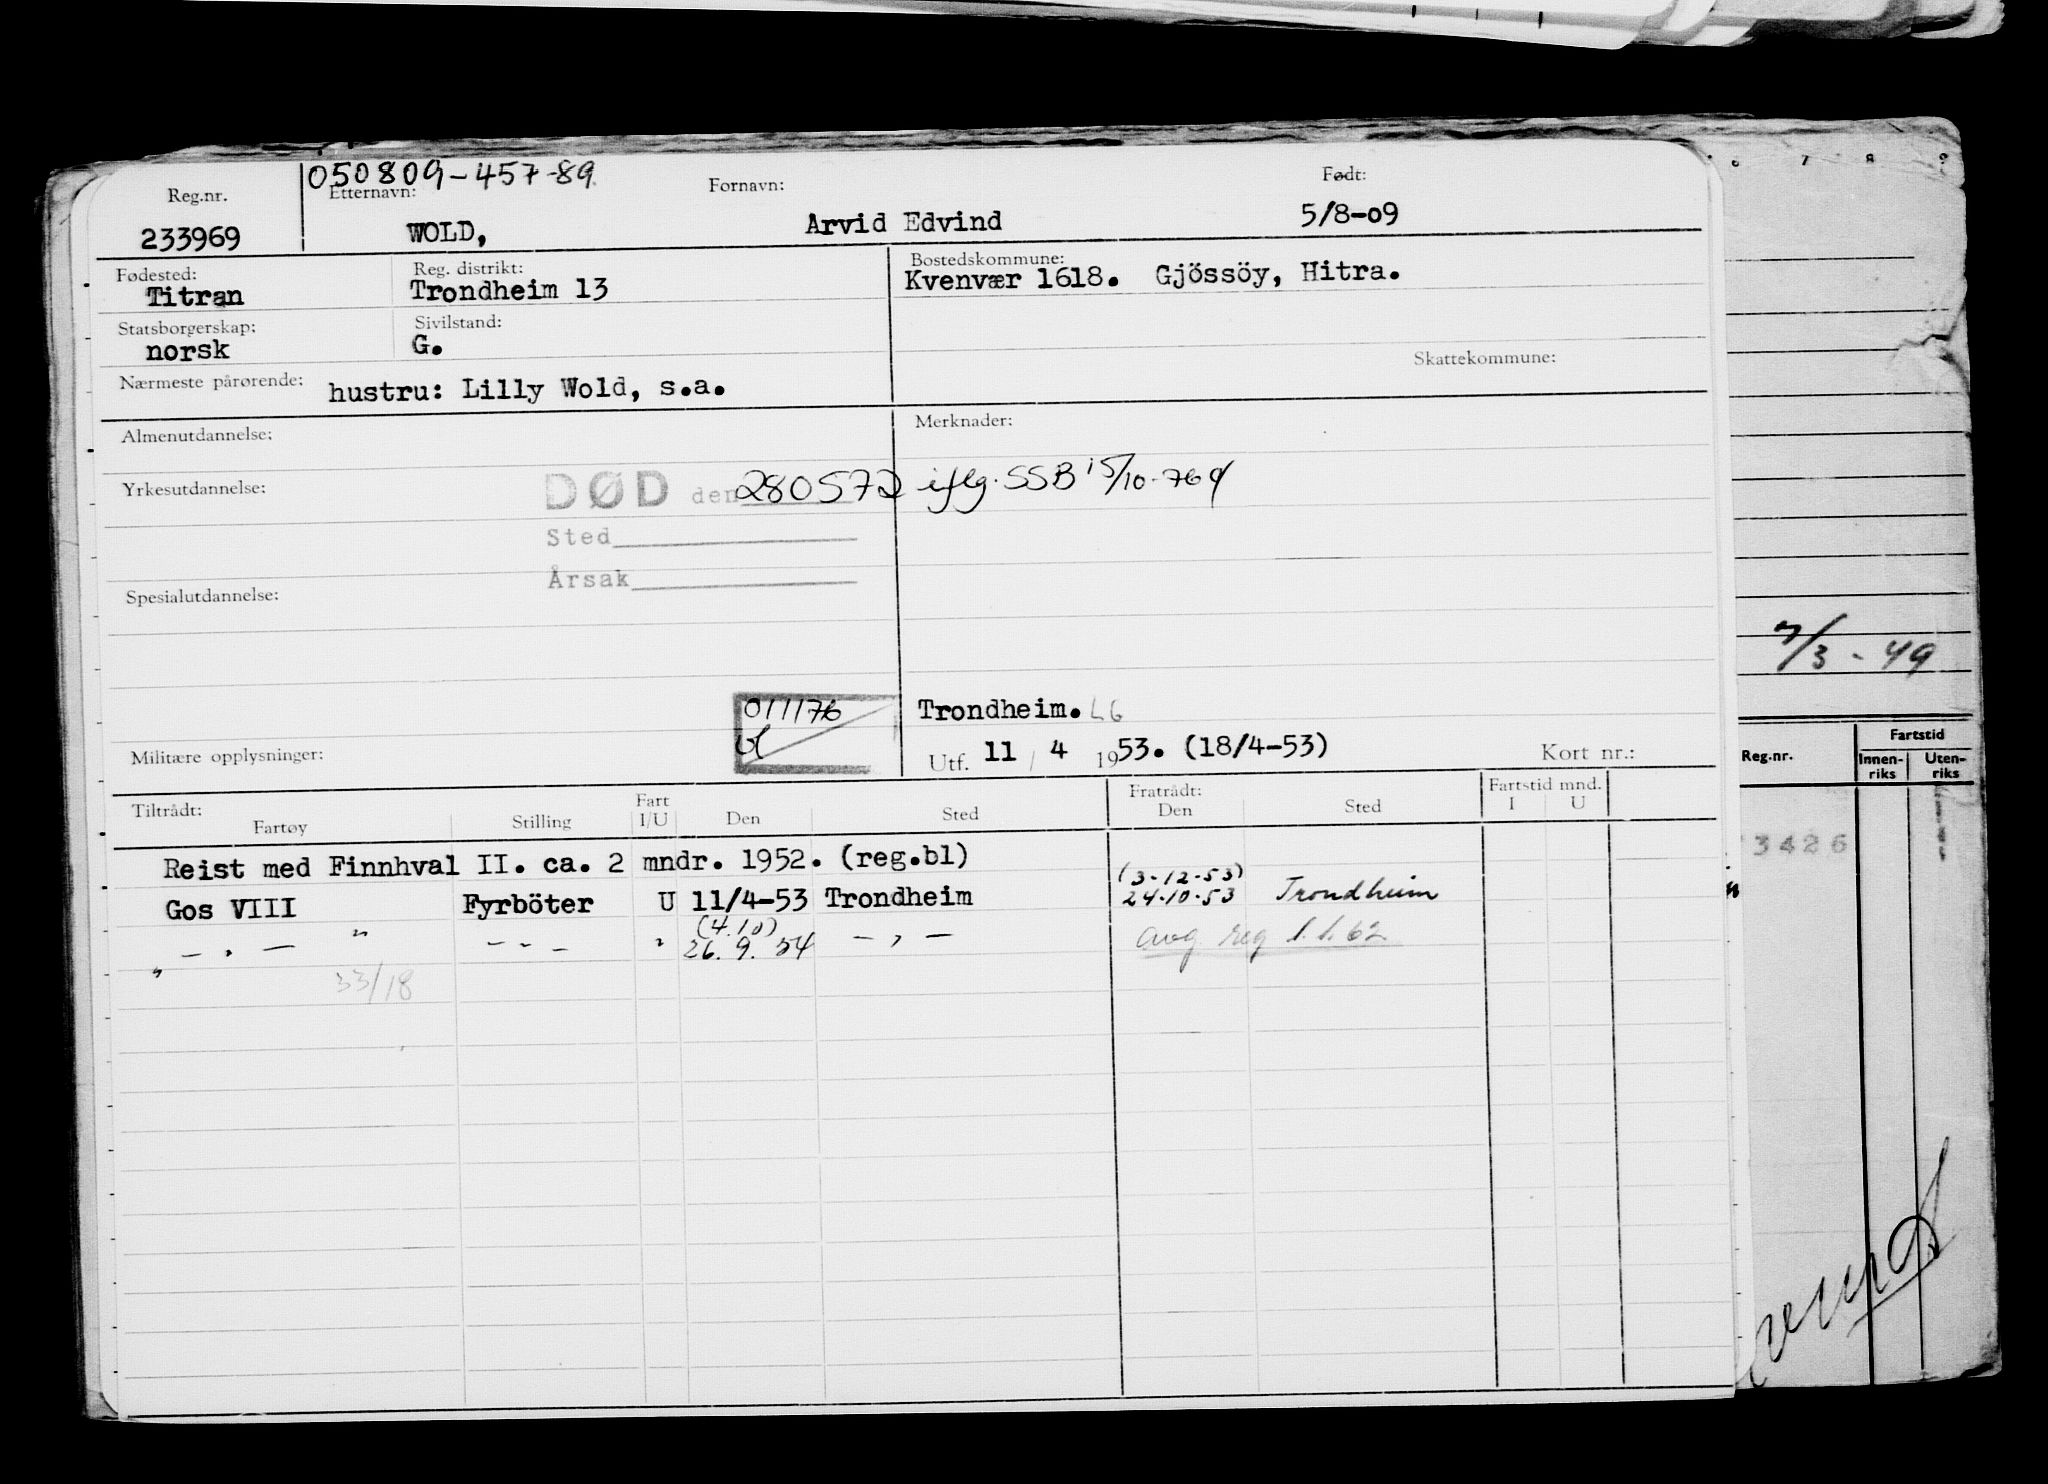 050809-457-89
Reg.nr. Etternavn: Fornavn: Født:
233969 WOLD, Arvid Edvind 5/8-09
Fødested: Reg. distrikt: Bostedskommune:
Titran Trondheim 13 Kvenvær 1618. Gjössöy, Hitra.
Statsborgerskap: Sivilstand:
norsk G.
Skattekommune:
Nærmeste pårørende: hustru: Lilly Wold, s.a.
Almenutdannelse: Merknader:
Yrkesutdannelse: DØD den 280572 iflg. SSB 15/10-76
Sted
Årsak
Spesialutdannelse:
011176 Trondheim. LG
Militære opplysninger: Utf. 11 / 4 1953. (18/4-53) Kort nr.:
Tiltrådt: Fart Fratrådt: Fartstid mnd.
Fartøy Stilling I/U Den Sted Den Sted I U
Reist med Finnhval II. ca. 2 mndr. 1952. (reg.bl)
(3-12-53)
Gos VIII Fyrböter U 11/4-53 Trondheim 24.10.53 Trondheim
(4.10)
— " — " — " — " 26. 9. 54 — " — avg reg 1.1.62
"
33/18
6 7 8 9
7/3 - 49
Fartstid
Reg.nr. Innen-riks Uten-riks
3426